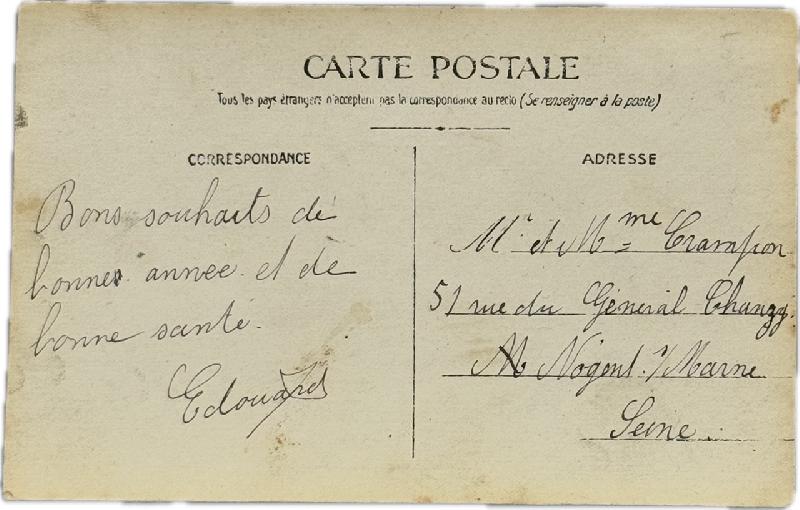 CARTE POSTALE
Tous les pays étrangers n'acceptent pas la correspondance au recto (Se renseigner à la poste)
CORRESPONDANCE
Bons souhaits de
bonnes année et de
bonne santé.
Edouard
ADRESSE
Mr et Mme Crampon
51 rue du Général Chanzy
M Nogent s/Marne
Seine.